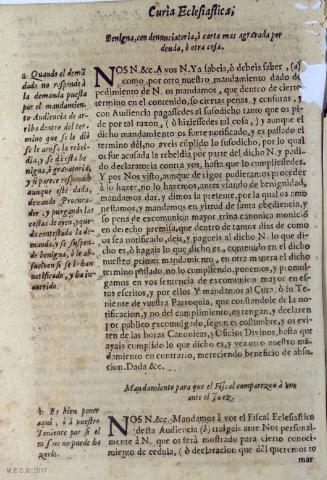 Curia Eclesiastica;
Benigna, con denunciatoria, ò carta mas agravada por
deuda, ò otra cosa.
a Quando el demã
dado no respondiò à
la demanda puesta
por el mandamien-
to Audiencia de ar-
riba dentro del ter-
mino que se le diò
se le acusa la rebel-
dia, y se dà esta be-
nigna, ò gravatoria,
y si parece respondiẽdo
aunque esté dada,
dexando Procura-
dor, y purgando las
costas de oyr, y que-
da contestada la de-
manda, y se suspen-
de benigna, ò le ab-
suelven si se le han
notificado, y ha in-
currido.
NOS N. &c. A vos N. Ya sabeis, ò debeis saber,
como, por otro nuestro mandamiento dado de
pedimiento de N. os mandamos, que dentro de cierto
termino en el contenido, so ciertas penas, y censuras, y
con Audiencia pagassedes al susodicho tanto que os pi-
de por tal razon, (ò hiziessedes tal cosa,) y aunque el
dicho mandamiento os fuete notificado, y es passado el
termino dèl, no aveis cũplido lo susodicho, por lo qual
os fue acusada la rebeldia por parte del dicho N. y pedi-
do declaratoria contra vos, hasta que lo cumpliessedes.
Y por Nos visto, aunque de rigor pudieramos proceder
à lo hazer, no lo hazemos, antes viando de benignidad,
mandamos dar, y dimos la presente, por la qual os amo
nestamos, y mandamos en virtud de santa obediencia, y
so pena de excomunion mayor, trina canonica monició
en derecho premissa, que dentro de tantos dias de como
os sea notificada, deis, y pagueis al dicho N. lo que di-
cho es, ò hagais lo que dicho es, contenido en el dicho
nuestro primer mandamiento, en otra manera el dicho
termino passado, no lo cumpliendo, ponemos, y promul-
gamos en vos sentencia de excomunion mayor en es-
tos escritos, y por ellos. Y mandamos al Cura, ò su Te-
niente de vuestra Parroquia, que constandole de la no-
tificacion, y no del cumplimiento, os tengan, y declaren
por publico excomulgado, segun es costumbre, y os evi-
ten de las horas Canonicas, y Oficios Divinos, hasta que
ayais cumplido lo que dicho es, y vea otro nuestro mã-
damiento en contrario, mereciendo beneficio de abso-
cion. Dada &c.
Mandamiento para que el Fiscal comparezca à uno
ante el Juez.
b Es bien poner
aqui, ò à vuestra
Teniente por si el
mismo no puede ha
zerlo.
NOS N. &c. Mandamos à vos el Fiscal Eclesiastico
desta Audiencia (b) traigais ante Nos personal-
mente à N. que os serà mostrado para cierto conoci-
miento de cedula, (ò declaracion que dèl queremos to
mar
M.E.C.D. 2017